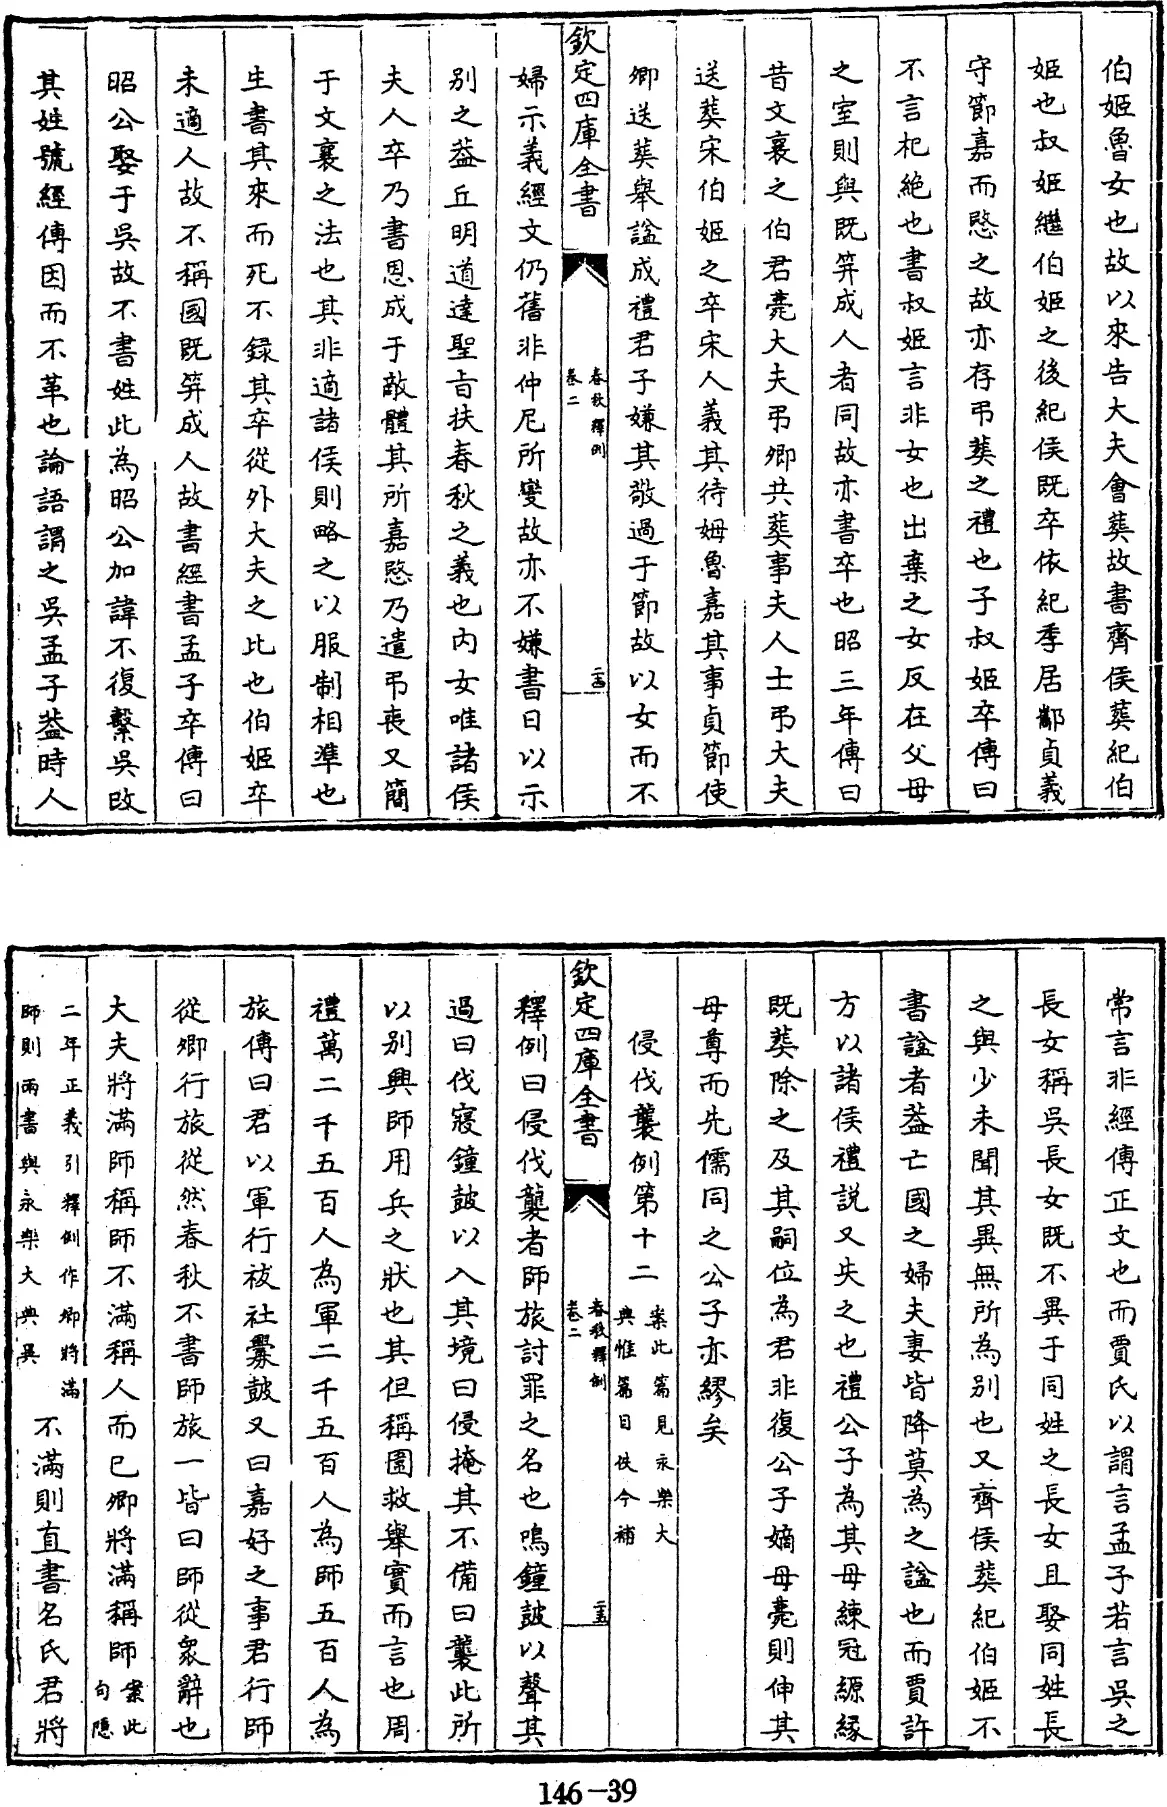 伯姬魯女也故以來告大夫會葬故書齊侯葬紀伯
姬也叔姬繼伯姬之後紀侯既卒依紀季居酅貞義
守節嘉而愍之故亦存弔葬之禮也子叔姬卒傳曰
不言杞絶也書叔姬言非女也出棄之女反在父母
之室則與既笄成人者同故亦書卒也昭三年傳曰
昔文襄之伯君薨大夫弔卿共葬事夫人士弔大夫
送葬宋伯姬之卒宋人義其待姆魯嘉其事貞節使
卿送葬舉諡成禮君子嫌其敬過于節故以女而不
欽定四庫全書
春秋釋例
卷二
二十四
婦示義經文仍舊非仲尼所變故亦不嫌書曰以示
别之葢丘明道達聖旨扶春秋之義也内女唯諸侯
夫人卒乃書恩成于敵體其所嘉愍乃遣弔喪又簡
于文襄之法也其非適諸侯則略之以服制相準也
生書其來而死不録其卒從外大夫之比也伯姬卒
未適人故不稱國既笄成人故書經書孟子卒傳曰
昭公娶于吳故不書姓此為昭公加諱不復繫吳改
其姓號經傳因而不革也論語謂之吳孟子葢時人
常言非經傳正文也而賈氏以謂言孟子若言吳之
長女稱吳長女既不異于同姓之長女且娶同姓長
之與少未聞其異無所為别也又齊侯葬紀伯姬不
書諡者葢亡國之婦夫妻皆降莫為之諡也而賈許
方以諸侯禮説又失之也禮公子為其母練冠縓緣
既葬除之及其嗣位為君非復公子嫡母薨則伸其
母尊而先儒同之公子亦繆矣
侵伐襲例第十二案此篇見永樂大典惟篇目佚今補
欽定四庫全書
春秋釋例
卷二
二十五
釋例曰侵伐襲者師旅討罪之名也鳴鐘鼓以聲其
過曰伐寢鐘鼓以入其境曰侵掩其不備曰襲此所
以别興師用兵之狀也其但稱圍救舉實而言也周
禮萬二千五百人為軍二千五百人為師五百人為
旅傳曰君以軍行祓社釁鼓又曰嘉好之事君行師
從卿行旅從然春秋不書師旅一皆曰師從衆辭也
大夫將滿師稱師不滿稱人而已卿將滿稱師案此句隱
二年正義引釋例作卿將滿師則兩書與永樂大典異不滿則直書名氏君將
146-39